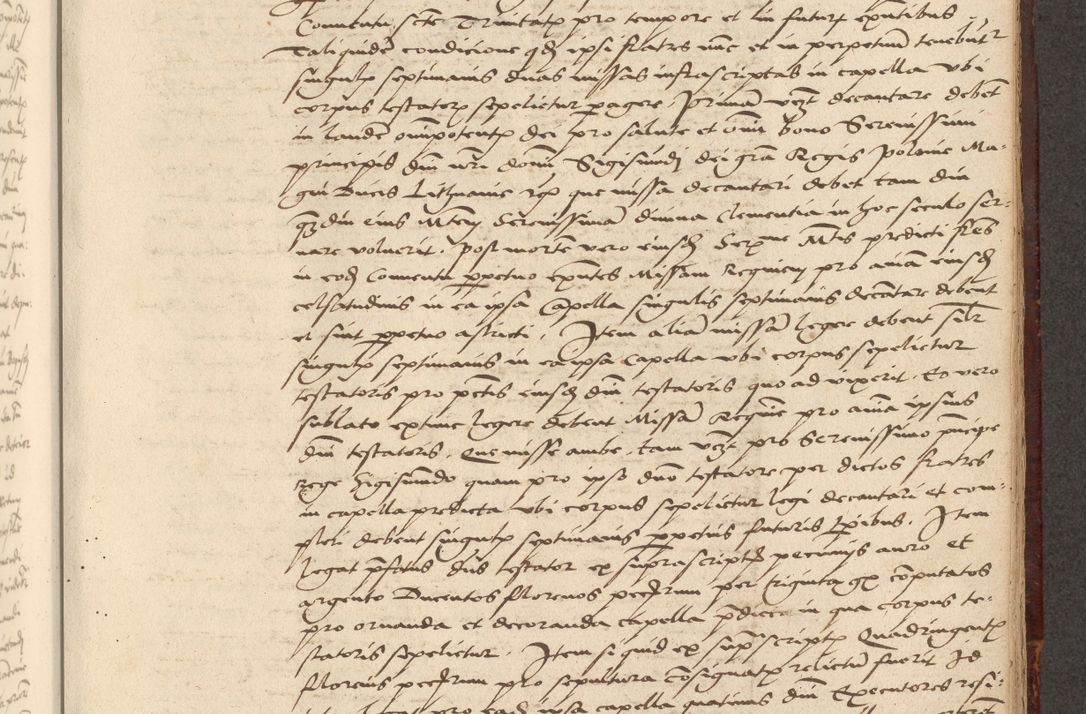 Conventu scte Trinitatis pro tempore et in futur existibus
Taliquidem condicione qd ipsi fratres nunc et in perpetuum tenebuntur
singulis septimanis duas missas infrascriptas in capella ubi
corpus testatoris sepelietur pagere. Primam vezt decantare debent
in laudem omnipotentis dei pro salute et omni bono Serenissimi
principis dni nri domini Sigismundi dei gra Regis Polonie Ma-
gni Ducis Lithuanie rcz que missa decantari debet tam diu
qzdiu eius Mtem Serenissimam divina Clementia in hoc seculo ser-
vare voluerit. Post mortem vero eiusd Serme Mtis predicti fres
in eod Conventu ppetuo exntes Missam Requiem pro aniam eiusd
celsitudinis in ea ipsa Capella singulis septimanis decantare debent
et sint ppetuo astricti. Item aliam missam legere debent silr
singulis septimanis in ea ipsa Capella ubi corpus sepelietur
testatoris pro pctis eiusd dni testatoris quo ad vixerit. Eo vero
sublato extunc legere debent Missam Requie pro aima ipsius
dni testatoris. Que misse ambe, tam vezt pro Serenissimo pncipe
Rege Sigismundo quam pro ipso dno testatore per dictos fratres
in capella predicta ubi corpus sepelietur legi decantari et com-
pleri debent singulis septimanis ppetuis futuris tpibus. Item
legat pfatus dns testator ex suprascriptis pecuniis auro et
argento Ducentos florenos pecrum per triginta gr computatos
pro ornanda et decoranda capella pdicta in qua corpus te-
statoris sepelietur. Item si quid ex supscriptis Quadringentis
florenis pecrum pro sepultura consignatis relictum fuerit Id
legat pro ead ipsa capella quatinus dni Executores resi-